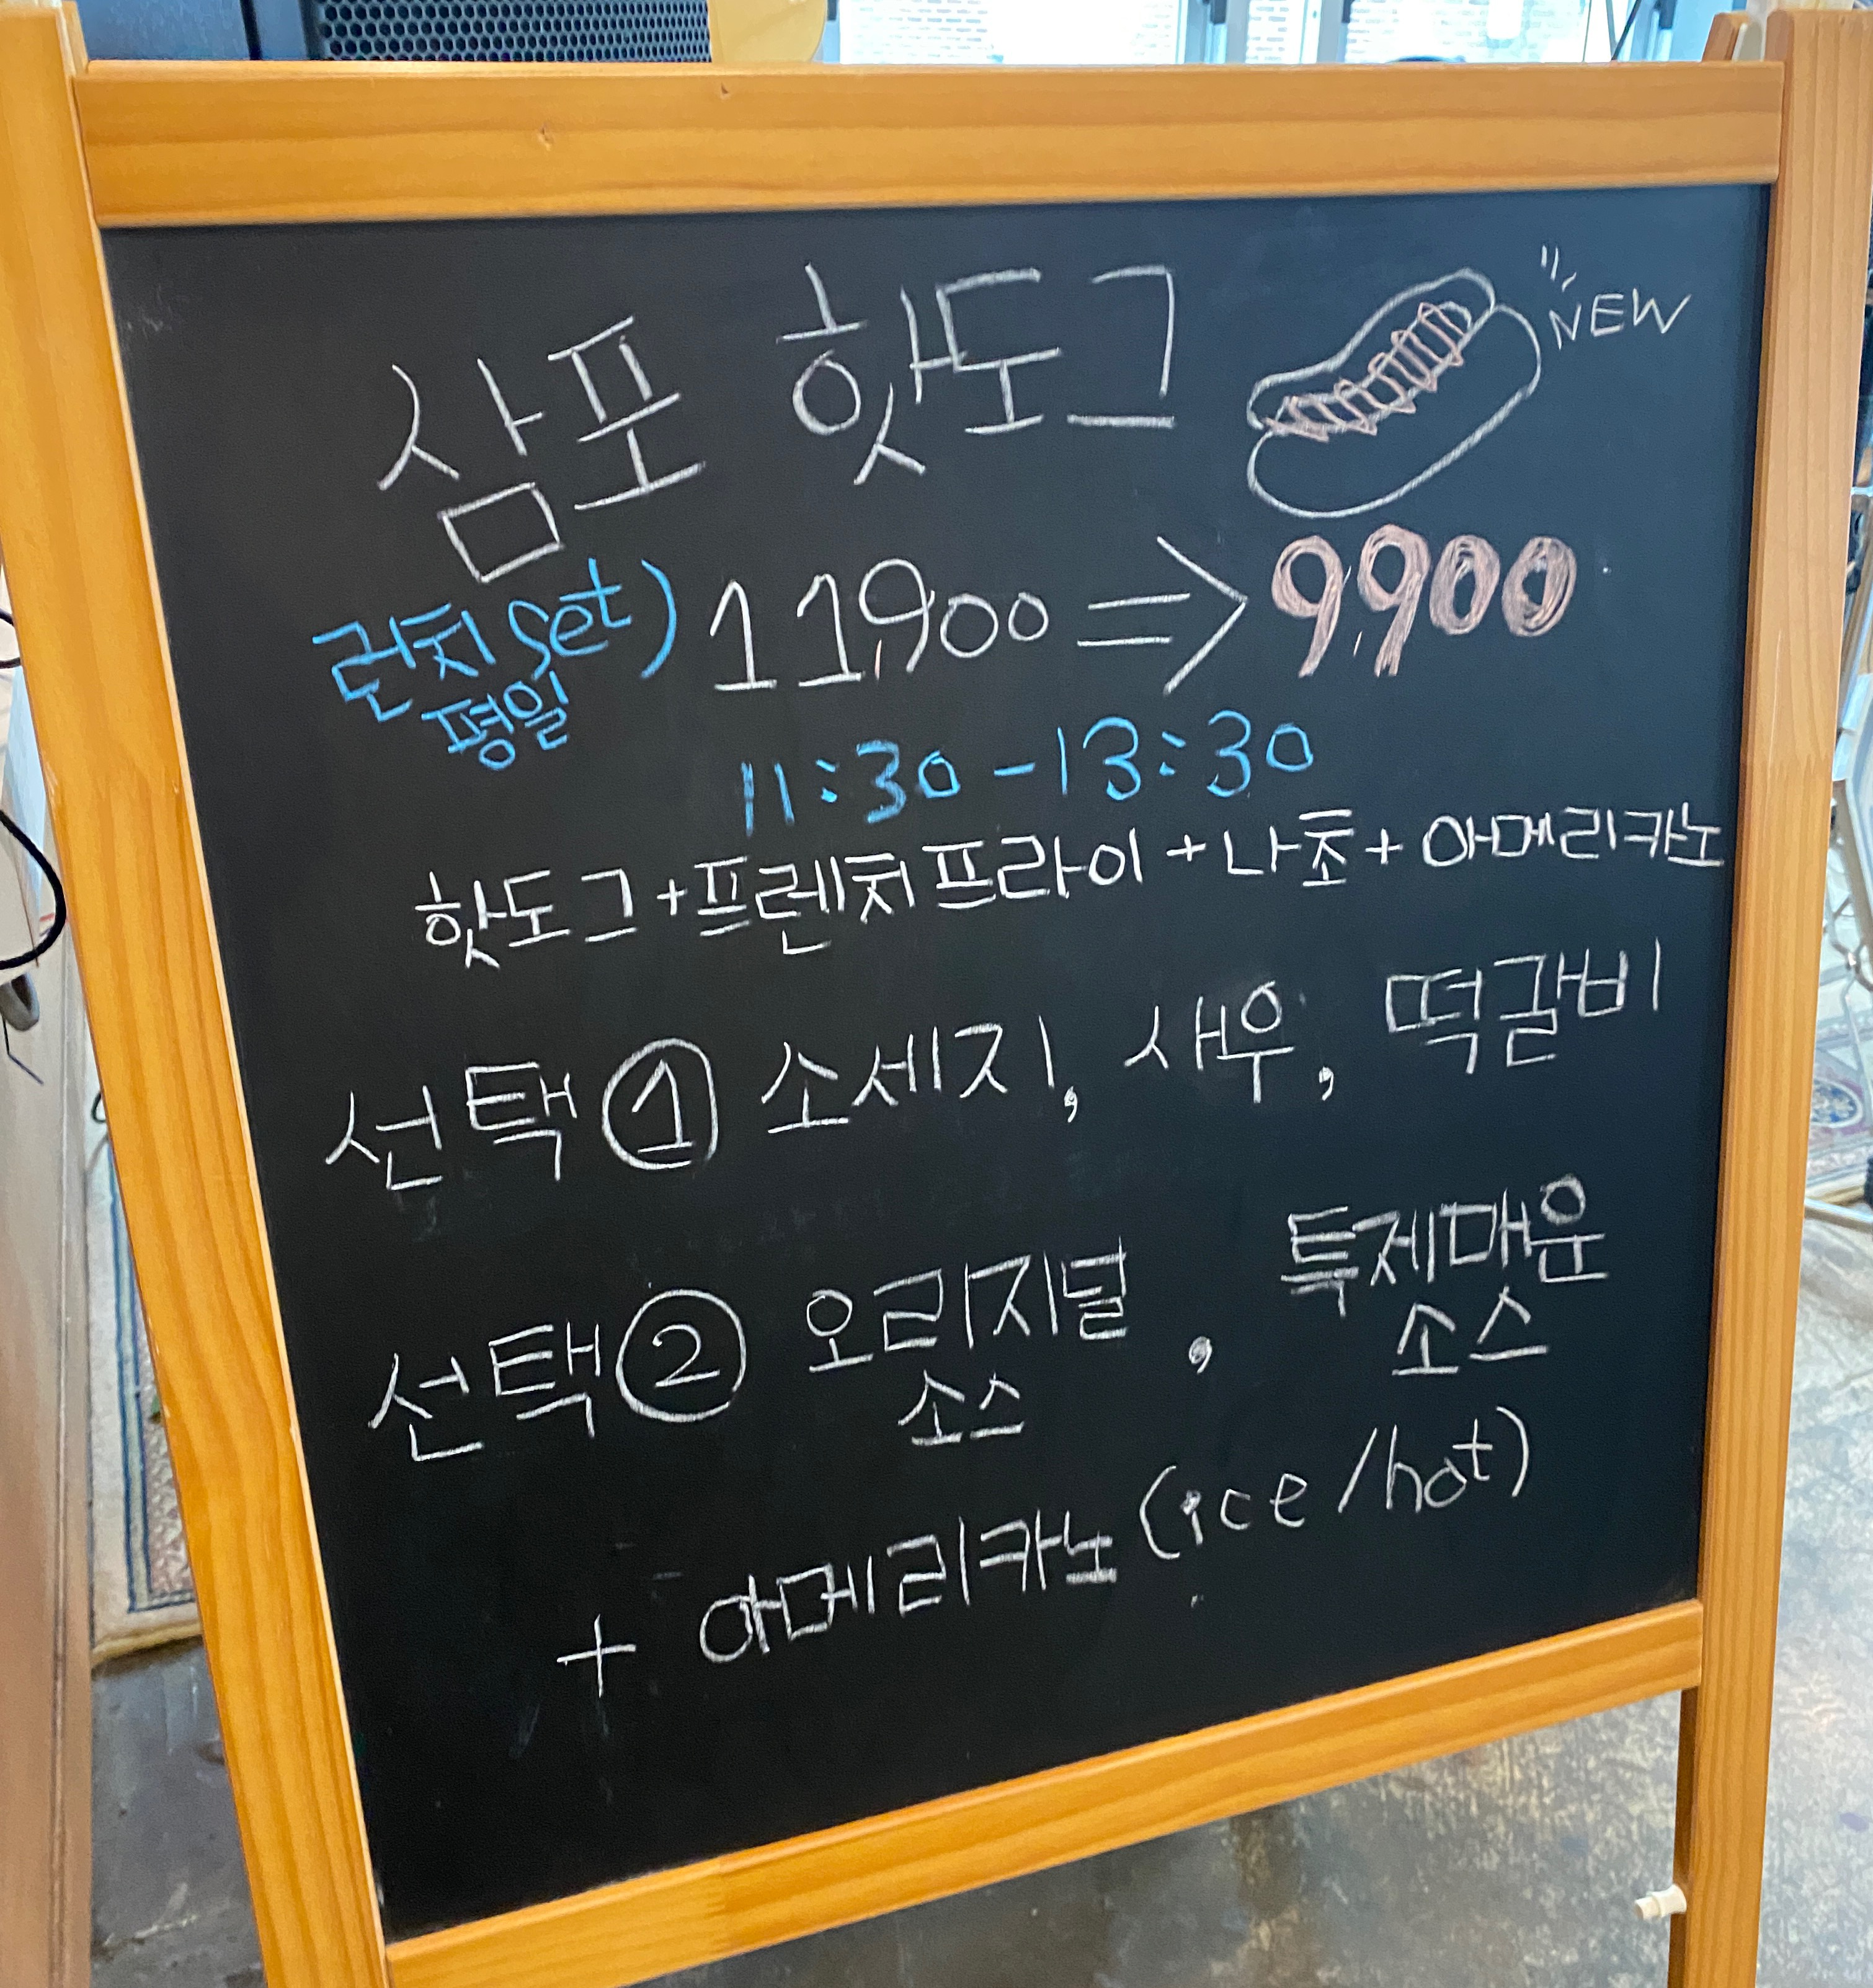 삼포 핫도그 NEW
런치 set) 11,900 ⇒ 9,900
평일
11:30-13:30
핫도그+프렌치프라이+나초+아메리카노
선택① 소세지, 새우, 떡갈비
선택② 오리지널 소스, 특제매운 소스
+ 아메리카노 (ice/hot)